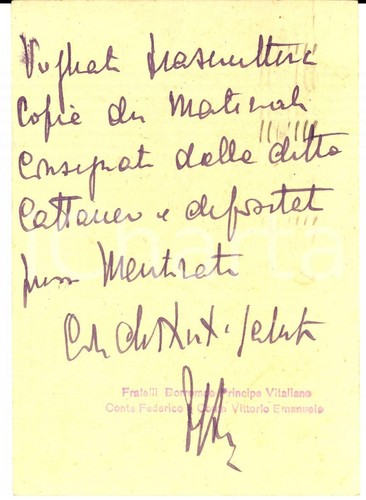 Vogliate trasmettere
Copia dei Materiali
Consegnati dalla ditta
Cattaneo e depositati
presso
Con distinti saluti
Fratelli Borromeo Principe Vitaliano
Conte Federico e Conte Vittorio Emanuele